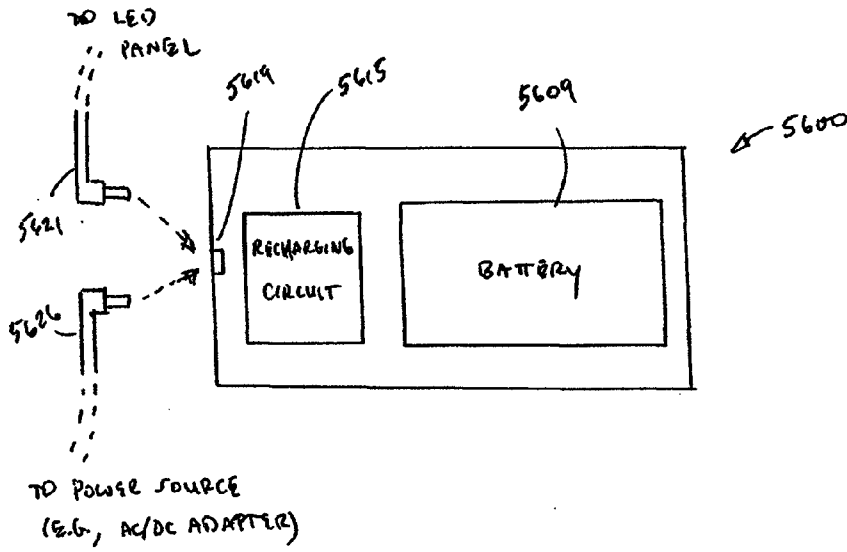 TO LED
PANEL
5619
5615
5609
5600
5621
RECHARGING
CIRCUIT
BATTERY
5626
TO POWER SOURCE
(E.G., AC/DC ADAPTER)